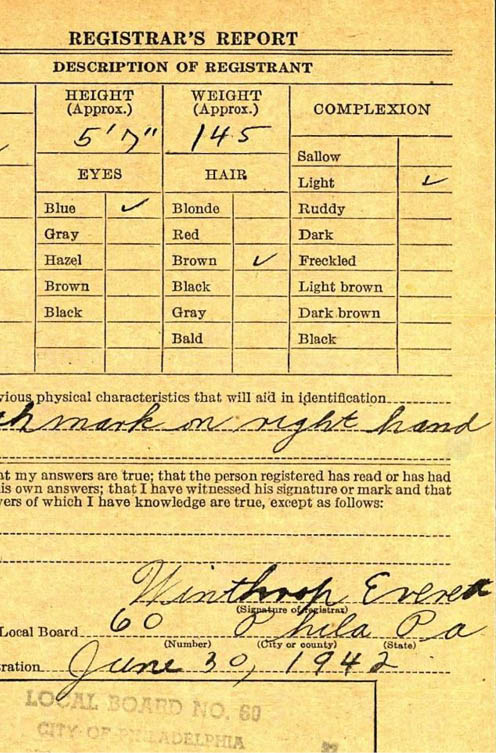 REGISTRAR'S REPORT
DESCRIPTION OF REGISTRANT
HEIGHT (Approx.) WEIGHT (Approx.) COMPLEXION
5'7" 145
EYES HAIR
Sallow
Light ✓
Blue ✓ Blonde Ruddy
Gray Red Dark
Hazel Brown ✓ Freckled
Brown Black Light brown
Black Gray Dark brown
Bald Black
vious physical characteristics that will aid in identification
h mark on right hand
at my answers are true; that the person registered has read or has had
is own answers; that I have witnessed his signature or mark and that
vers of which I have knowledge are true, except as follows:
Winthrop
(Signature of registrar)
Local Board 60 Phila Pa
(Number) (City or county) (State)
ration June 30, 1942
LOCAL BOARD NO. 60
CITY OF PHILADELPHIA